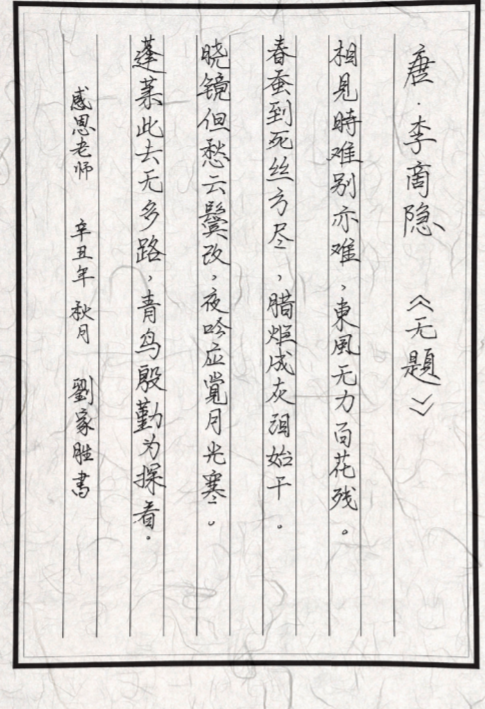 唐·李商隐 《无题》
相見時难别亦难，東風无力百花残。
春蚕到死丝方尽，腊炬成灰泪始干。
晓镜但愁云鬓改，夜吟应覚月光寒。
蓬莱此去无多路，青鸟殷勤为探看。
感恩老师 辛丑年 秋月 劉家胜書